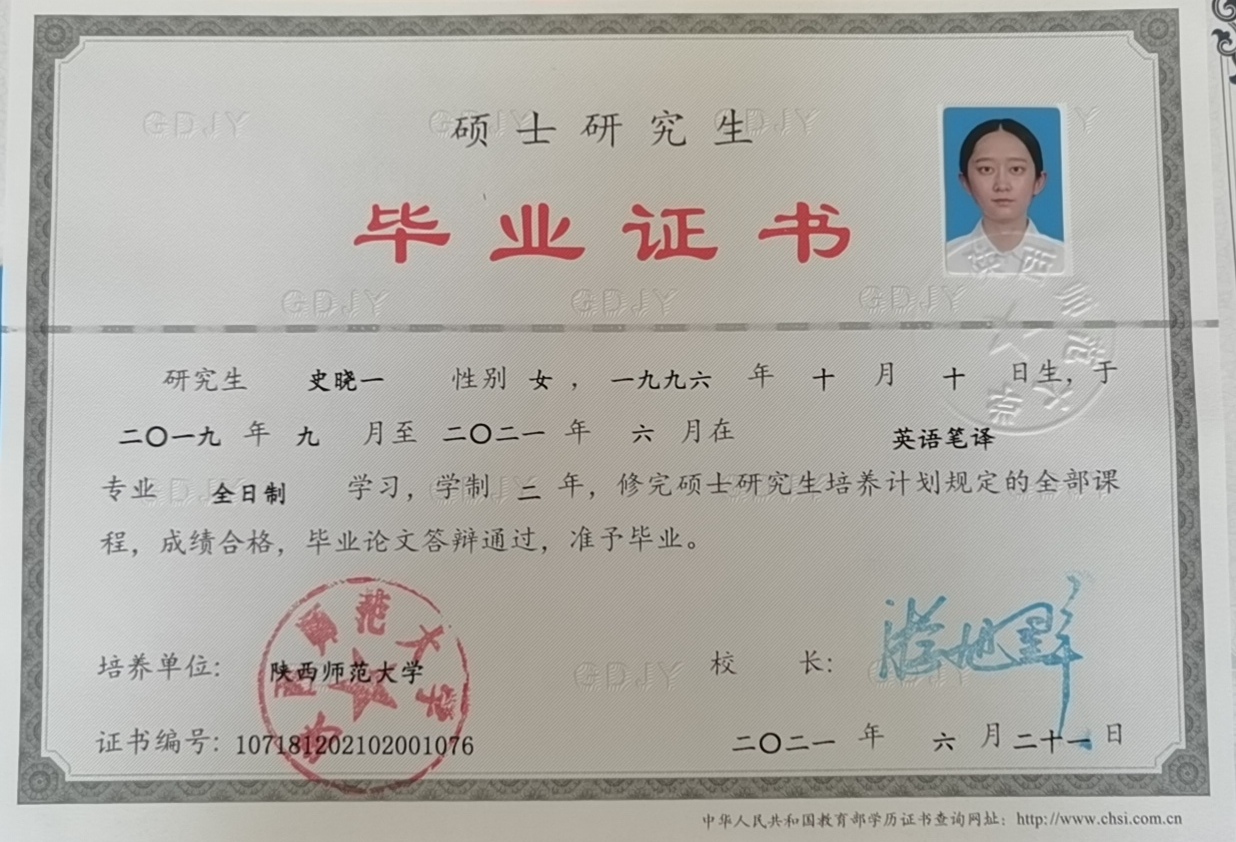 硕士研究生
毕业证书
研究生 史晓一 性别 女，一九九六 年 十 月 十 日生，于
二〇一九 年 九 月至 二〇二一 年 六 月在 英语笔译
专业 全日制 学习，学制 二 年，修完硕士研究生培养计划规定的全部课
程，成绩合格，毕业论文答辩通过，准予毕业。
培养单位：陕西师范大学 校 长：
证书编号：107181202102001076 二〇二一 年 六 月 二十一 日
中华人民共和国教育部学历证书查询网址：http://www.chsi.com.cn
GDJY GDJY GDJY
GDJY GDJY GDJY
陕西师范大学
陕西师范大学